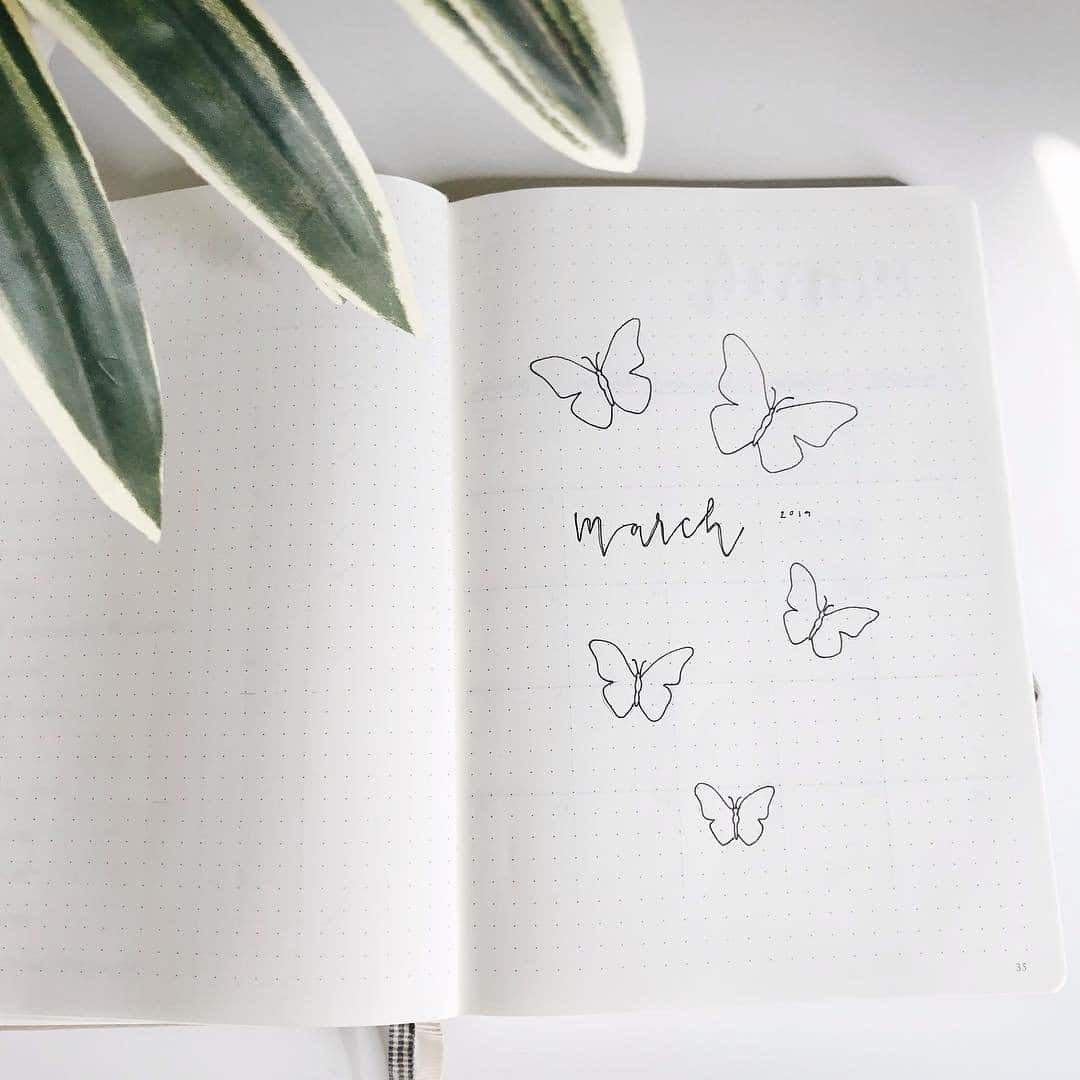 march 2019
35